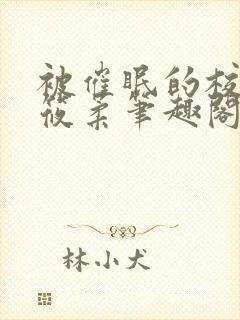 被催眠的校
筱柔笔趣阁
林小犬